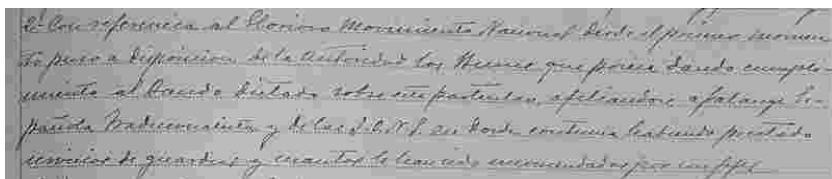 2º Con referencia al Glorioso Movimiento Nacional desde el primer momen
to puso a disposicion de la Autoridad los Bienes que poseia dando cumpli-
miento al Bando dictado sobre este particular, afiliandose a Falange Es-
pañola Tradicionalista y de las J.O.N.S. en donde continua habiendo prestado
servicios de guardias y cuantos le han sido encomendados por sus Jefes